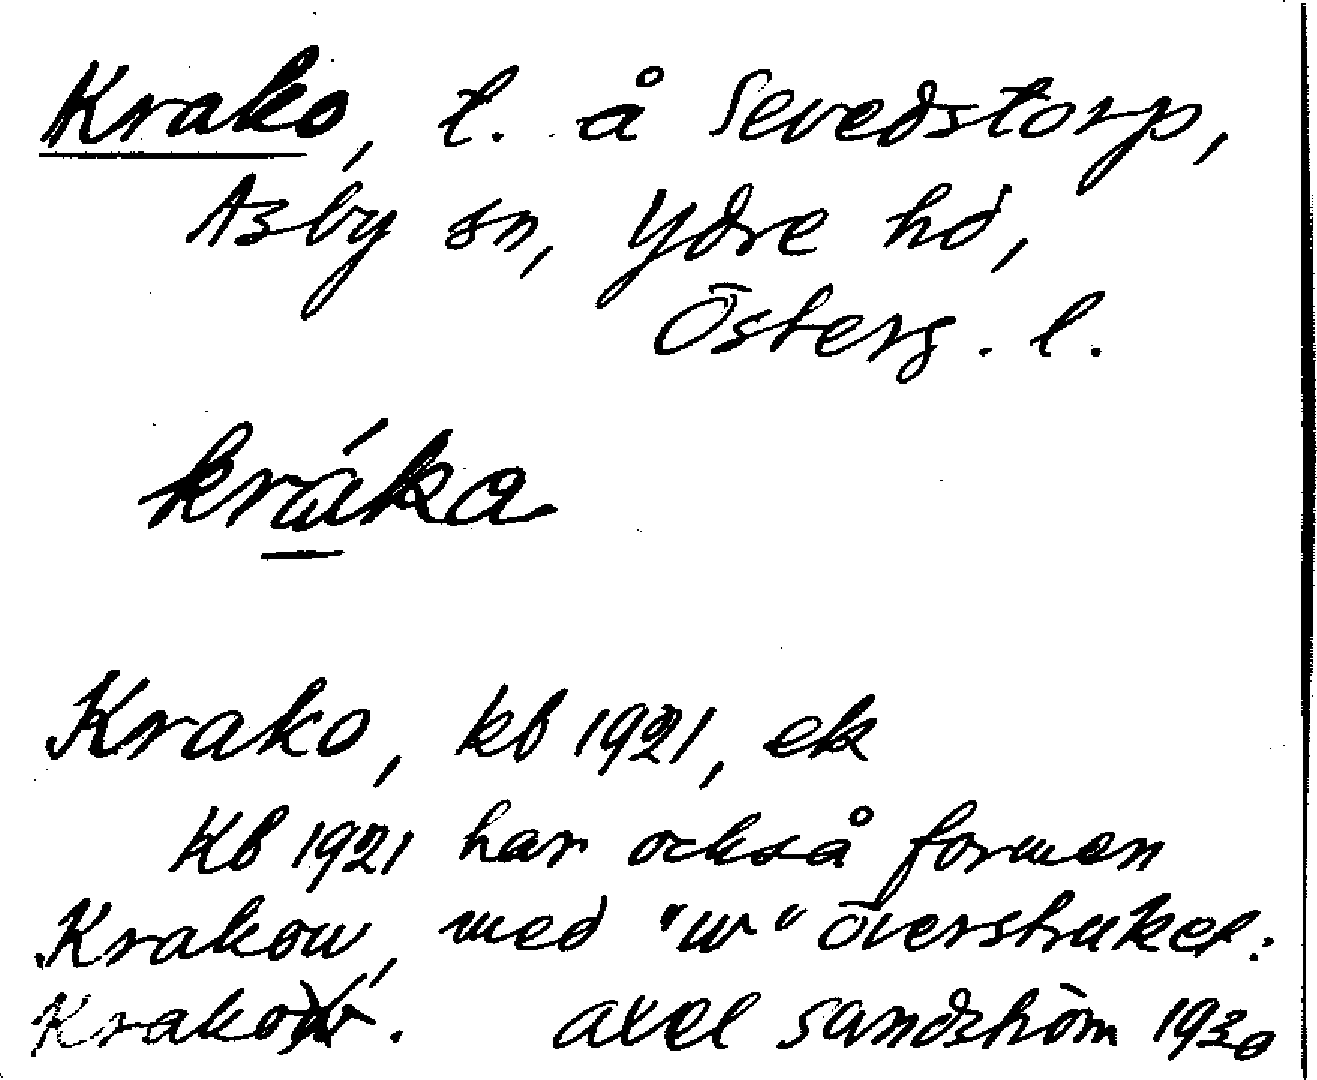 Krako, t. å Sevedstorp,
Asby sn, Ydre hd,
Österg. l.
kráka
Krako, kb 1921, ek
Kb 1921 har också formen
Krakow, med "w" överstruket:
Krakow. Axel Sandström 1930